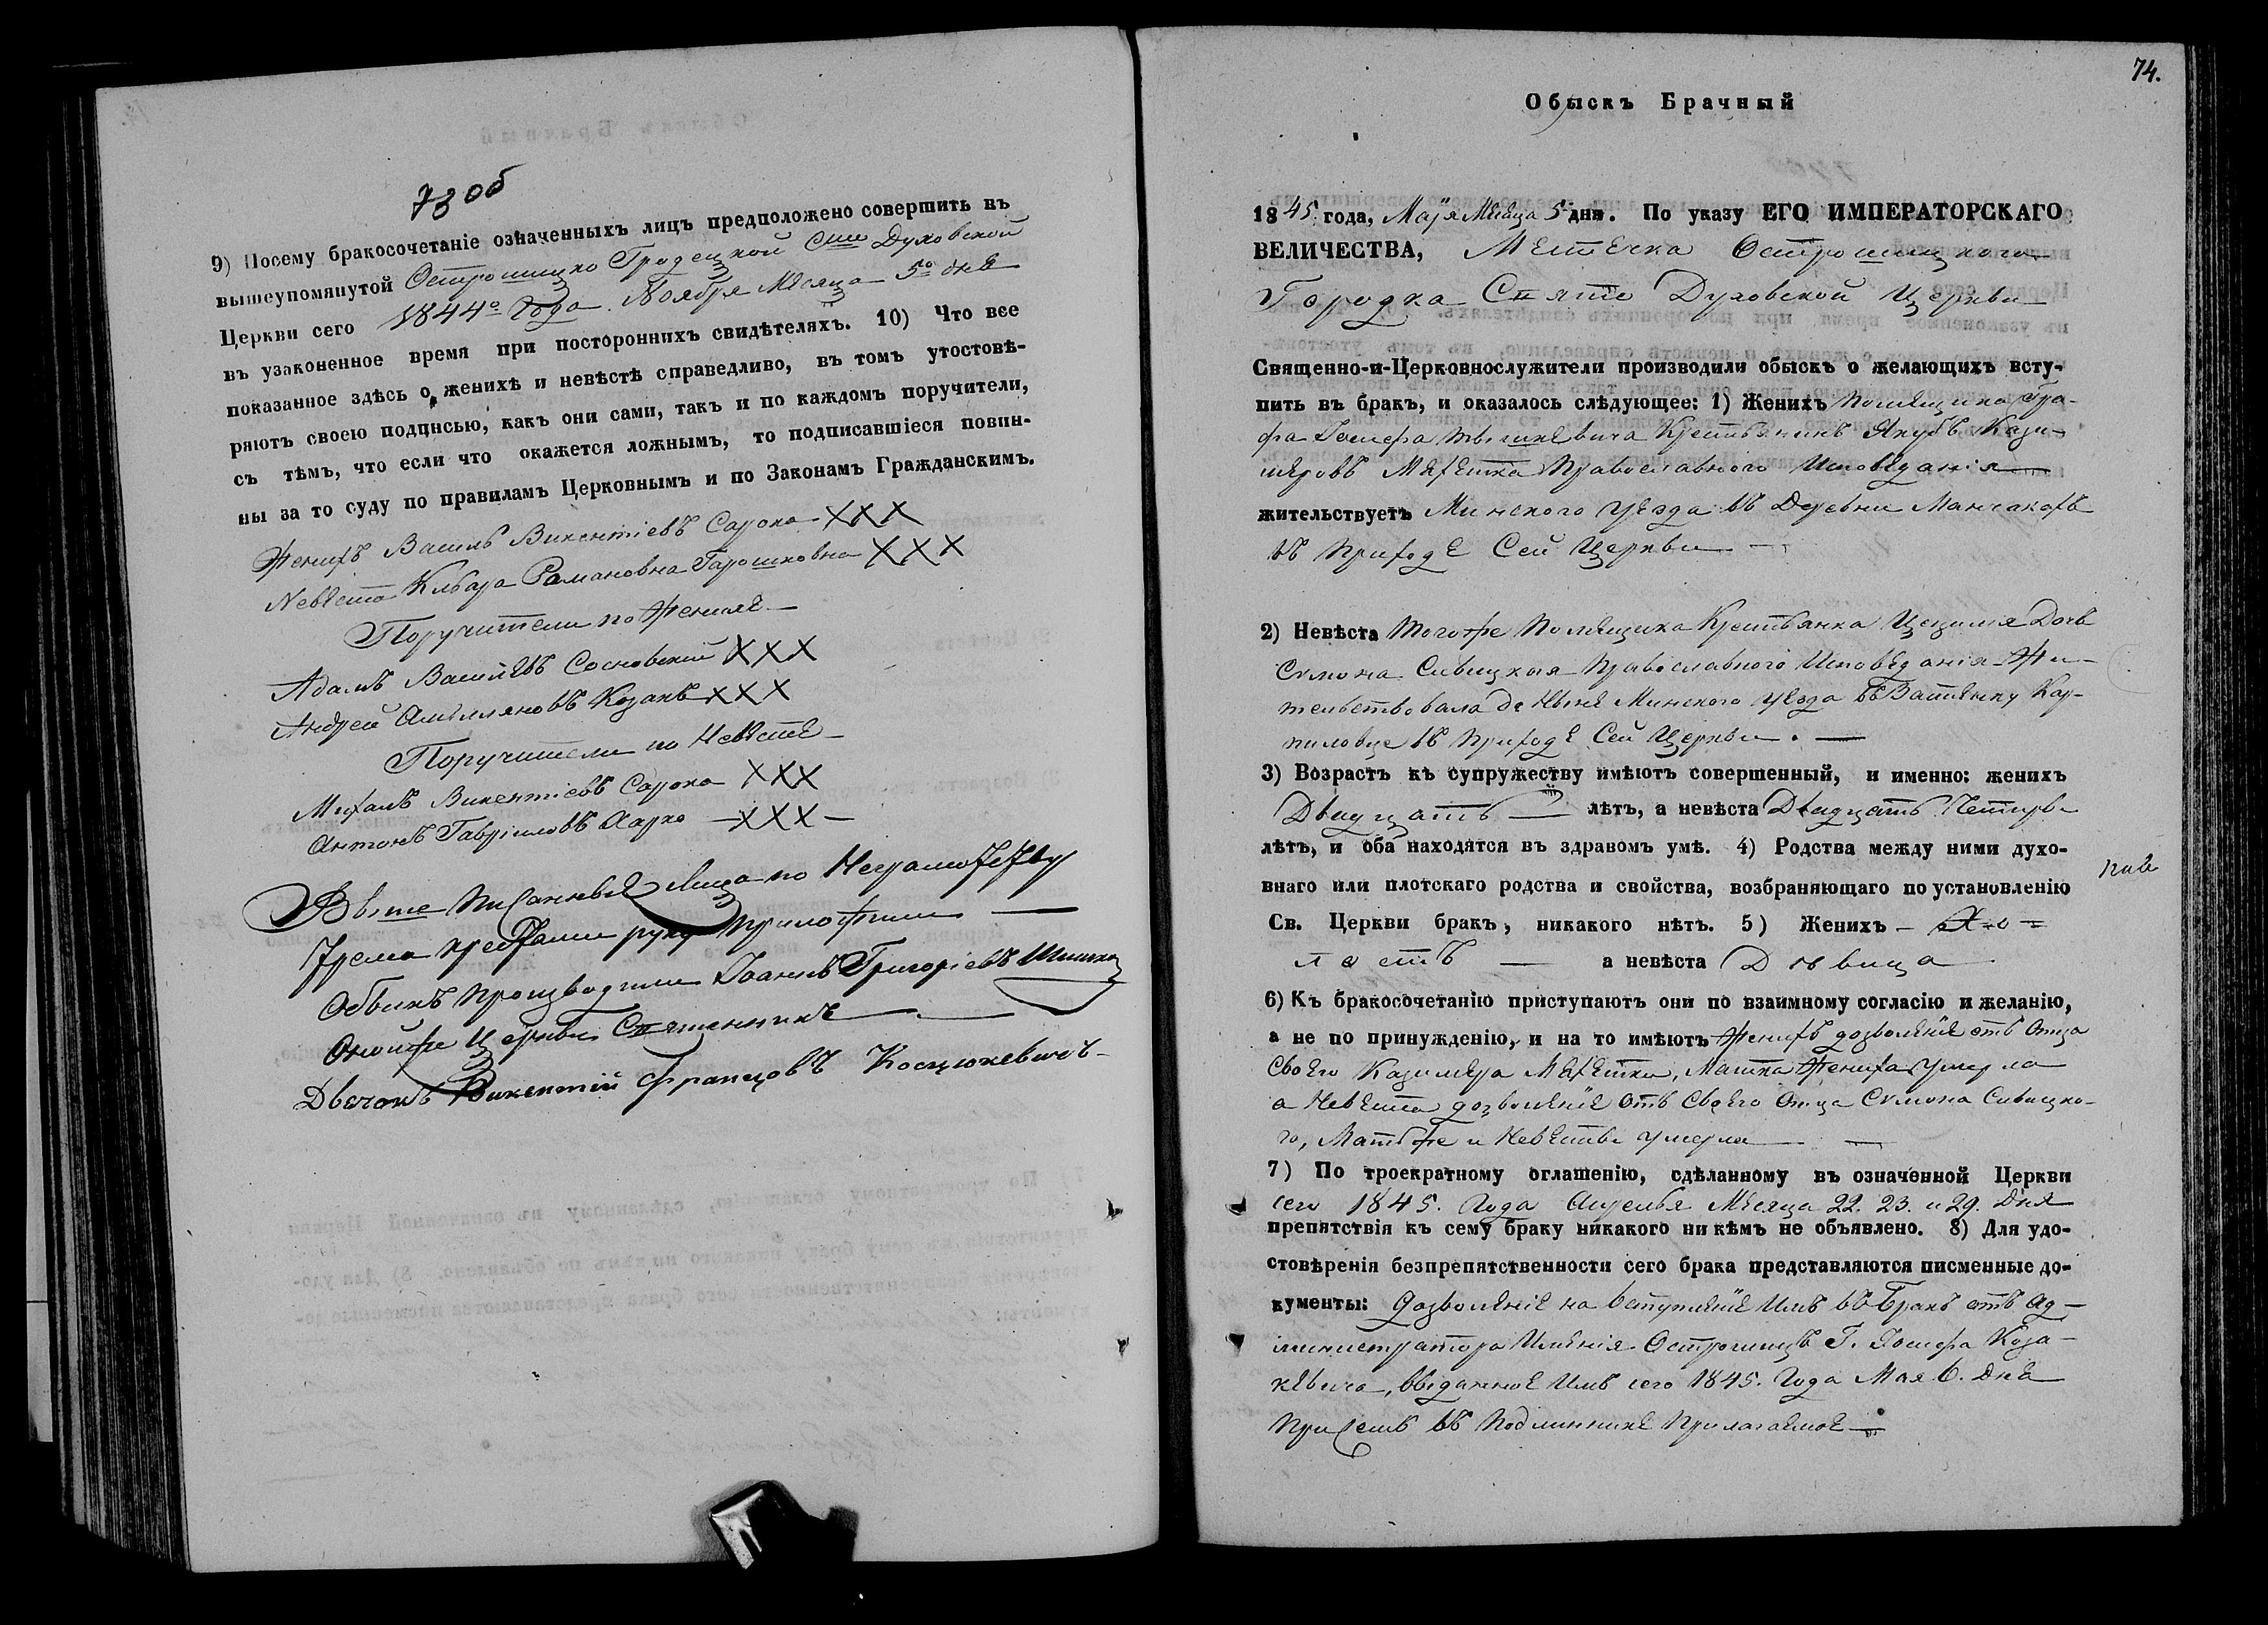 73 об
9) Посему бракосочетаніе означенныхъ лицъ предположено совершить въ
вышеупомянутойОстрошицко Гродецкой Сто Духовской
Церкви сего 1844го Года. Ноября Месяца 5го дня
въ узаконенное время при постороннихъ свидѣтеляхъ. 10) Что все
показанное здѣсь о женихѣ и невѣстѣ справедливо, въ томъ утостовѣ-
ряютъ своею подписью, какъ они сами, такъ и по каждомъ поручители,
съ тѣмъ, что если что окажется ложнымъ, то подписавшіеся повин-
ны за то суду по правиламъ Церковнымъ и по Законамъ Гражданскимъ.
Женихъ Василь Викентіевъ Сарока XXX
Невѣста Клара Рамановна Гарошковна XXX
Поручители по Женихе
Адамъ Василевъ Сосновский XXX
Андрей Амиляновъ Козакъ XXX
Поручители по Невѣсте
Михалъ Викентіевъ Сарока XXX
Антонъ Гавріиловъ Харко XXX
Выше писанные Лица по Неграмотству
Трема крестами руку приложили
Обыскъ производили Іоаннъ Григоріевъ
Онойже Церкви Священникъ
Дьячокъ Викентій Францовъ Косцюкевичъ
74.
Обыскъ Брачный
1845 года, Майя Месяца 5 дня. По указу ЕГО ИМПЕРАТОРСКАГО
ВЕЛИЧЕСТВА, Местечка Острошицкого
Городка Свято Духовской Церкви
Священно-и-Церковнослужители производили обыскъ о желающихъ всту-
пить въ бракъ, и оказалось слѣдующее: 1) Женихъ Помещика Гра-
фа Іосифа Тышкевича Крестьянинъ Якубъ Кази-
меровъ Мехетка Православного Исповѣданія
жительствуетъ Минского Уезда въ Деревни Мончакахъ
въ Приходе Сей Церкви
2) Невѣста тогоже Помещика Крестьянка Цецилія Дочь
Сымона Сивицкая Православного Исповѣданія Жи-
тельствовала до Ныне Минского Уезда въ Застенку Кар-
пиловце въ Приходе Сей Церкви.
3) Возрастъ къ супружеству имѣютъ совершенный, и именно: женихъ
Двадцать лѣтъ, а невѣста Двадцать Четыре
лѣтъ, и оба находятся въ здравомъ умѣ. 4) Родства между ними духо-
внаго или плотскаго родства и свойства, возбраняющаго по установленію
Св. Церкви бракъ, никакого нѣтъ. 5) Женихъ - Хо-
лостъ а невѣста Дѣвица
6) Къ бракосочетанію приступаютъ они по взаимному согласію и желанію,
а не по принужденію, и на то имѣютъ Женихъ дозволеніе отъ Отца
Своего Казимера Мехетки, Матка Жениха Умерла
а Невѣста дозволеніе Отъ Своего Отца Сымона Сивицко-
го, Матьже и Невѣсты умерла
7) По троекратному оглашенію, сдѣланному въ означенной Церкви
сего 1845. Года Апреля Месяца 22. 23. и 29. Дня
препятствія къ сему браку никакого ни кѣмъ не объявлено. 8) Для удо-
стовѣренія безпрепятственности сего брака представляются писменные до-
кументы: Дозволеніе на вступленіе Имъ въ Бракъ отъ Ад-
министратора Именія Острошицъ Г. Іосифа Коза-
кевича, выданное Имъ сего 1845. Года Мая 6. Дня
При семъ въ Подлиннике Прилагаемое